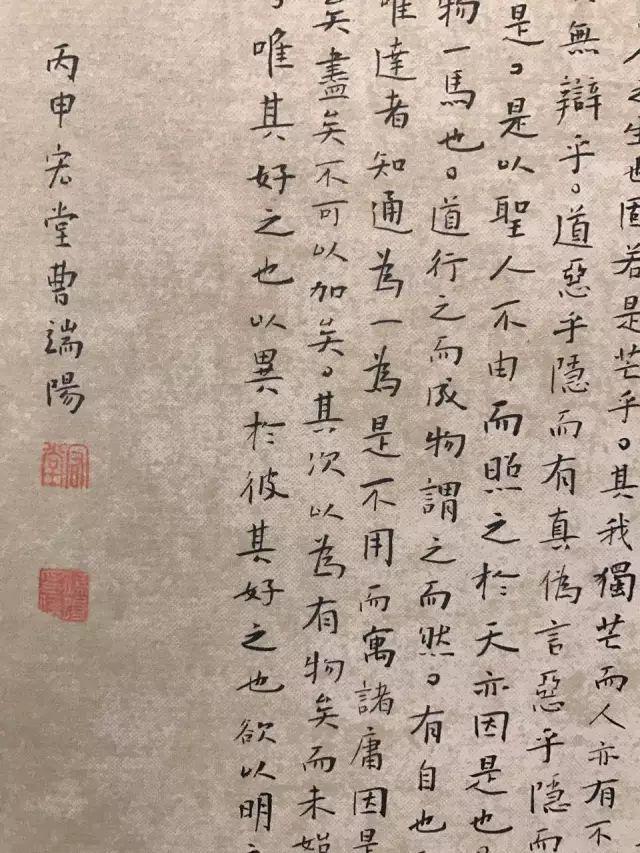 人之生也固若是芒乎。其我獨芒而人亦有不
無辯乎。道惡乎隱而有真偽言惡乎隱而
是。是以聖人不由而照之於天亦因是也
物一馬也。道行之而成物謂之而然。有自也
唯達者知通為一為是不用而寓諸庸因是
矣盡矣不可以加矣。其次以為有物矣而未始
唯其好之也以異於彼其好之也欲以明之
丙申宏堂曹端陽
宏堂